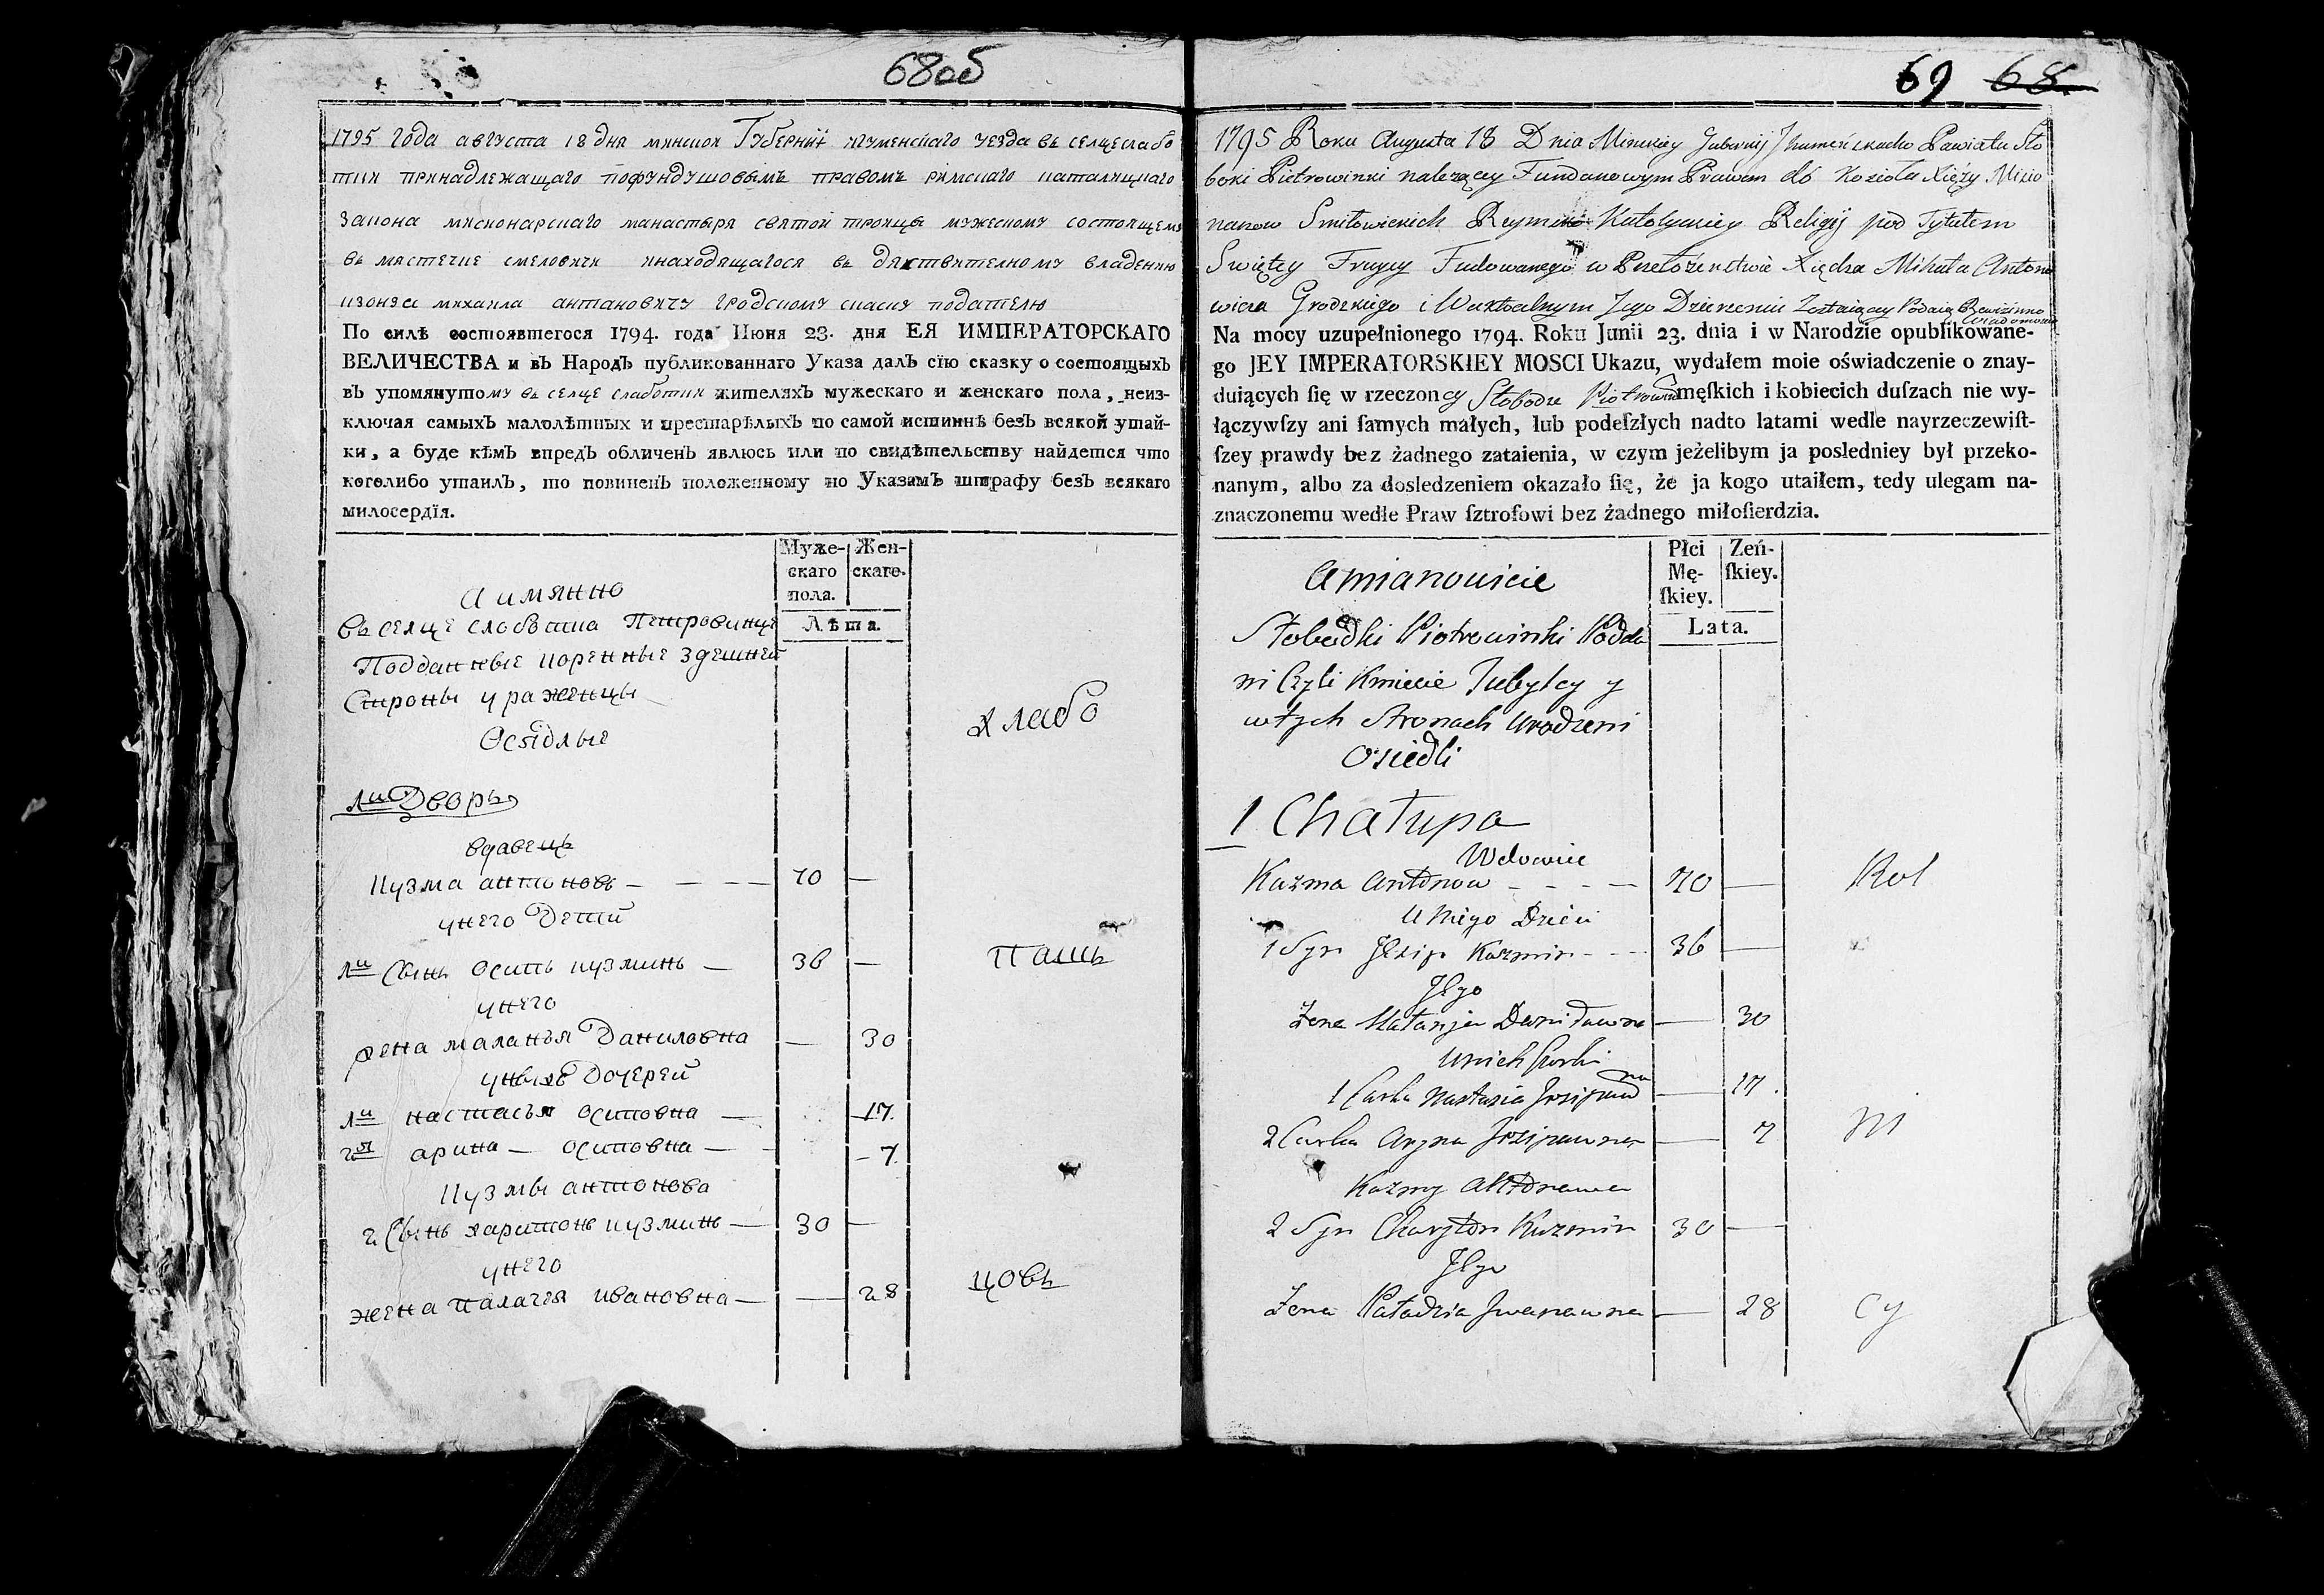 68об
1795 года августа 18 дня минской Губернии игуменскаго уезда въ селцеслабо
тки принадлежащаго пофундушовымъ правомъ римскаго каталицкаго
закона мисионарскаго манастыря святой троицы мужескому состоящему
въ местечке смеловичи инаходящагося въ действителному владению
изонзса михаила антановичу гродскому подателю
По силѣ состоявшегося 1794. года Июня 23. дня ЕЯ ИМПЕРАТОРСКАГО
ВЕЛИЧЕСТВА и въ Народъ публикованнаго Указа далъ сїю сказку о состоящыхъ
въ упомянутому въ селце слаботки жителяхъ мужескаго и женскаго пола, неиз-
ключая самыхъ малолѣтныхъ и престарѣлыхъ по самой истиннѣ безъ всякой утай-
ки, а буде кѣмъ впредъ обличенъ явлюсь или по свидѣтельству найдется что
коголибо утаилъ, то повиненъ положенному по Указамъ штрафу безъ всякаго
милосердїя.
Муже-
скаго
пола.
Жен-
скаго.
Лѣта.
а имянно
въ селце слаботка Петровинце
Подданные коренные здешней
Стироны уроженцы
Оседлые
хлабо
1й Дворъ
вдавецъ
Кузма антоновъ — 70 —
унего Детей
1й Сынъ осипъ кузминъ — 36 — пашь
унего
жена маланья Даниловна — 30
уныхъ Дочерей
1й настасья осиповна — 17.
2я арина — осиповна — 7.
Кузмы антонова
2 Сынъ харитонъ кузминъ — 30 —
унего
жена палагея ивановна — 28 цовъ
69 68.
1795 Roku Augusta 18 Dnia Minskiey Gubernij Jhumeńskacho Pawiatu Sło
boki Piotrowinki nalezący Fundanowym Prawem dó Kozioła Xięży Misio
narzow Smiłowickich Reyms Katolyckiey Religij pod Tytułem
Swiętey Truycy Fudowanego w Przełożenstwie Xiędza Mihała Antono
wicza Grodzkiego i Waktualnym Jego Dzierzeniu Zostaiący Podaią Rewizinno
Wiadomosc
Na mocy uzupełnionego 1794. Roku Junii 23. dnia i w Narodzie opublikowane-
go JEY IMPERATORSKIEY MOSCI Ukazu, wydałem moie oświadczenie o znay-
duiących ſię w rzeczoncy Słobodze Piotrowin męſkich i kobiecich duſzach nie wy-
łączywſzy ani ſamych małych, lub podeſzłych nadto latami wedle nayrzeczewiſt-
ſzey prawdy bez żadnego zataienia, w czym jeżelibym ja posledniey był przeko-
nanym, albo za dosledzeniem okazało ſię, że ja kogo utaiłem, tedy ulegam na-
znaczonemu wedle Praw ſztrofowi bez żadnego miłoſierdzia.
Płci
Mę-
ſkiey.
Zeń-
ſkiey.
Lata.
Amianowicie
Słobodki Piotrowinki Podda
ni Czyli Kmiecie Tubylcy y
wtych Stronach Urodzeni
Osiedli
1 Chałupa
Wdowiec
Kuzma Antonow — 70 — Rol
U Niego Dzieci
1 Syn Jözip Kuzmin — 36 —
Jego
Zena Małanja Daniławna — 30
Unich Curki
1 Curka Nastazia Jozipawna — 17.
2 Curka Aryna Jozipawna — 7 ni
Kuzmy Antonawa
2 Syn Charyton Kuzmin 30 —
Jego
Zena Paładzia Jwanawna — 28 cy